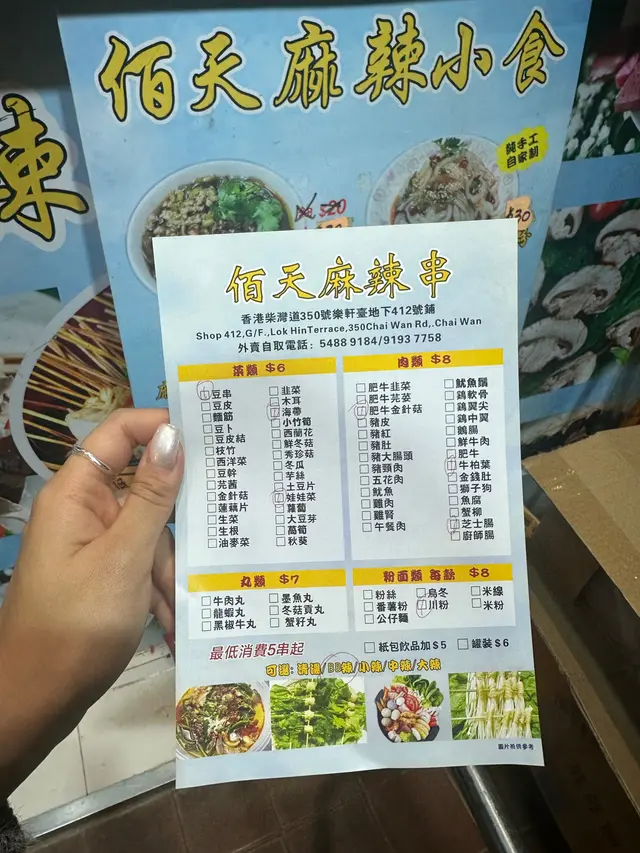 佰天麻辣小食
辣
純手工
自家制
$20
$30
佰天麻辣串
香港柴灣道350號樂軒臺地下412號鋪
Shop 412,G/F.,Lok HinTerrace,350Chai Wan Rd,.Chai Wan
外賣自取電話：5488 9184/9193 7758
菜類 $6
豆串
豆皮
麵筋
豆卜
豆皮結
枝竹
西洋菜
豆幹
茼菌
金針菇
蓮藕片
生菜
生根
油麥菜
韭菜
木耳
海帶
小竹筍
西蘭花
鮮冬菇
秀珍菇
冬瓜
芋絲
土豆片
娃娃菜
蘿蔔
大豆芽
萵筍
秋葵
肉類 $8
肥牛韭菜
肥牛芫荽
肥牛金針菇
豬皮
豬紅
豬肚
豬大腸頭
豬頸肉
五花肉
魷魚
雞肉
雞腎
午餐肉
魷魚鬚
鷄軟骨
鷄翼尖
鷄中翼
鵝腸
鮮牛肉
肥牛
牛柏葉
金錢肚
獅子狗
魚腐
蟹柳
芝士腸
廚師腸
丸類 $7
牛肉丸
龍蝦丸
黑椒牛丸
墨魚丸
冬菇貢丸
蟹籽丸
粉面類 每款 $8
粉絲
番薯粉
公仔麵
烏冬
川粉
米線
米粉
最低消費5串起
紙包飲品加$5
罐裝$6
可選：清湯/BB辣/小辣/中辣/大辣
圖片祗供參考